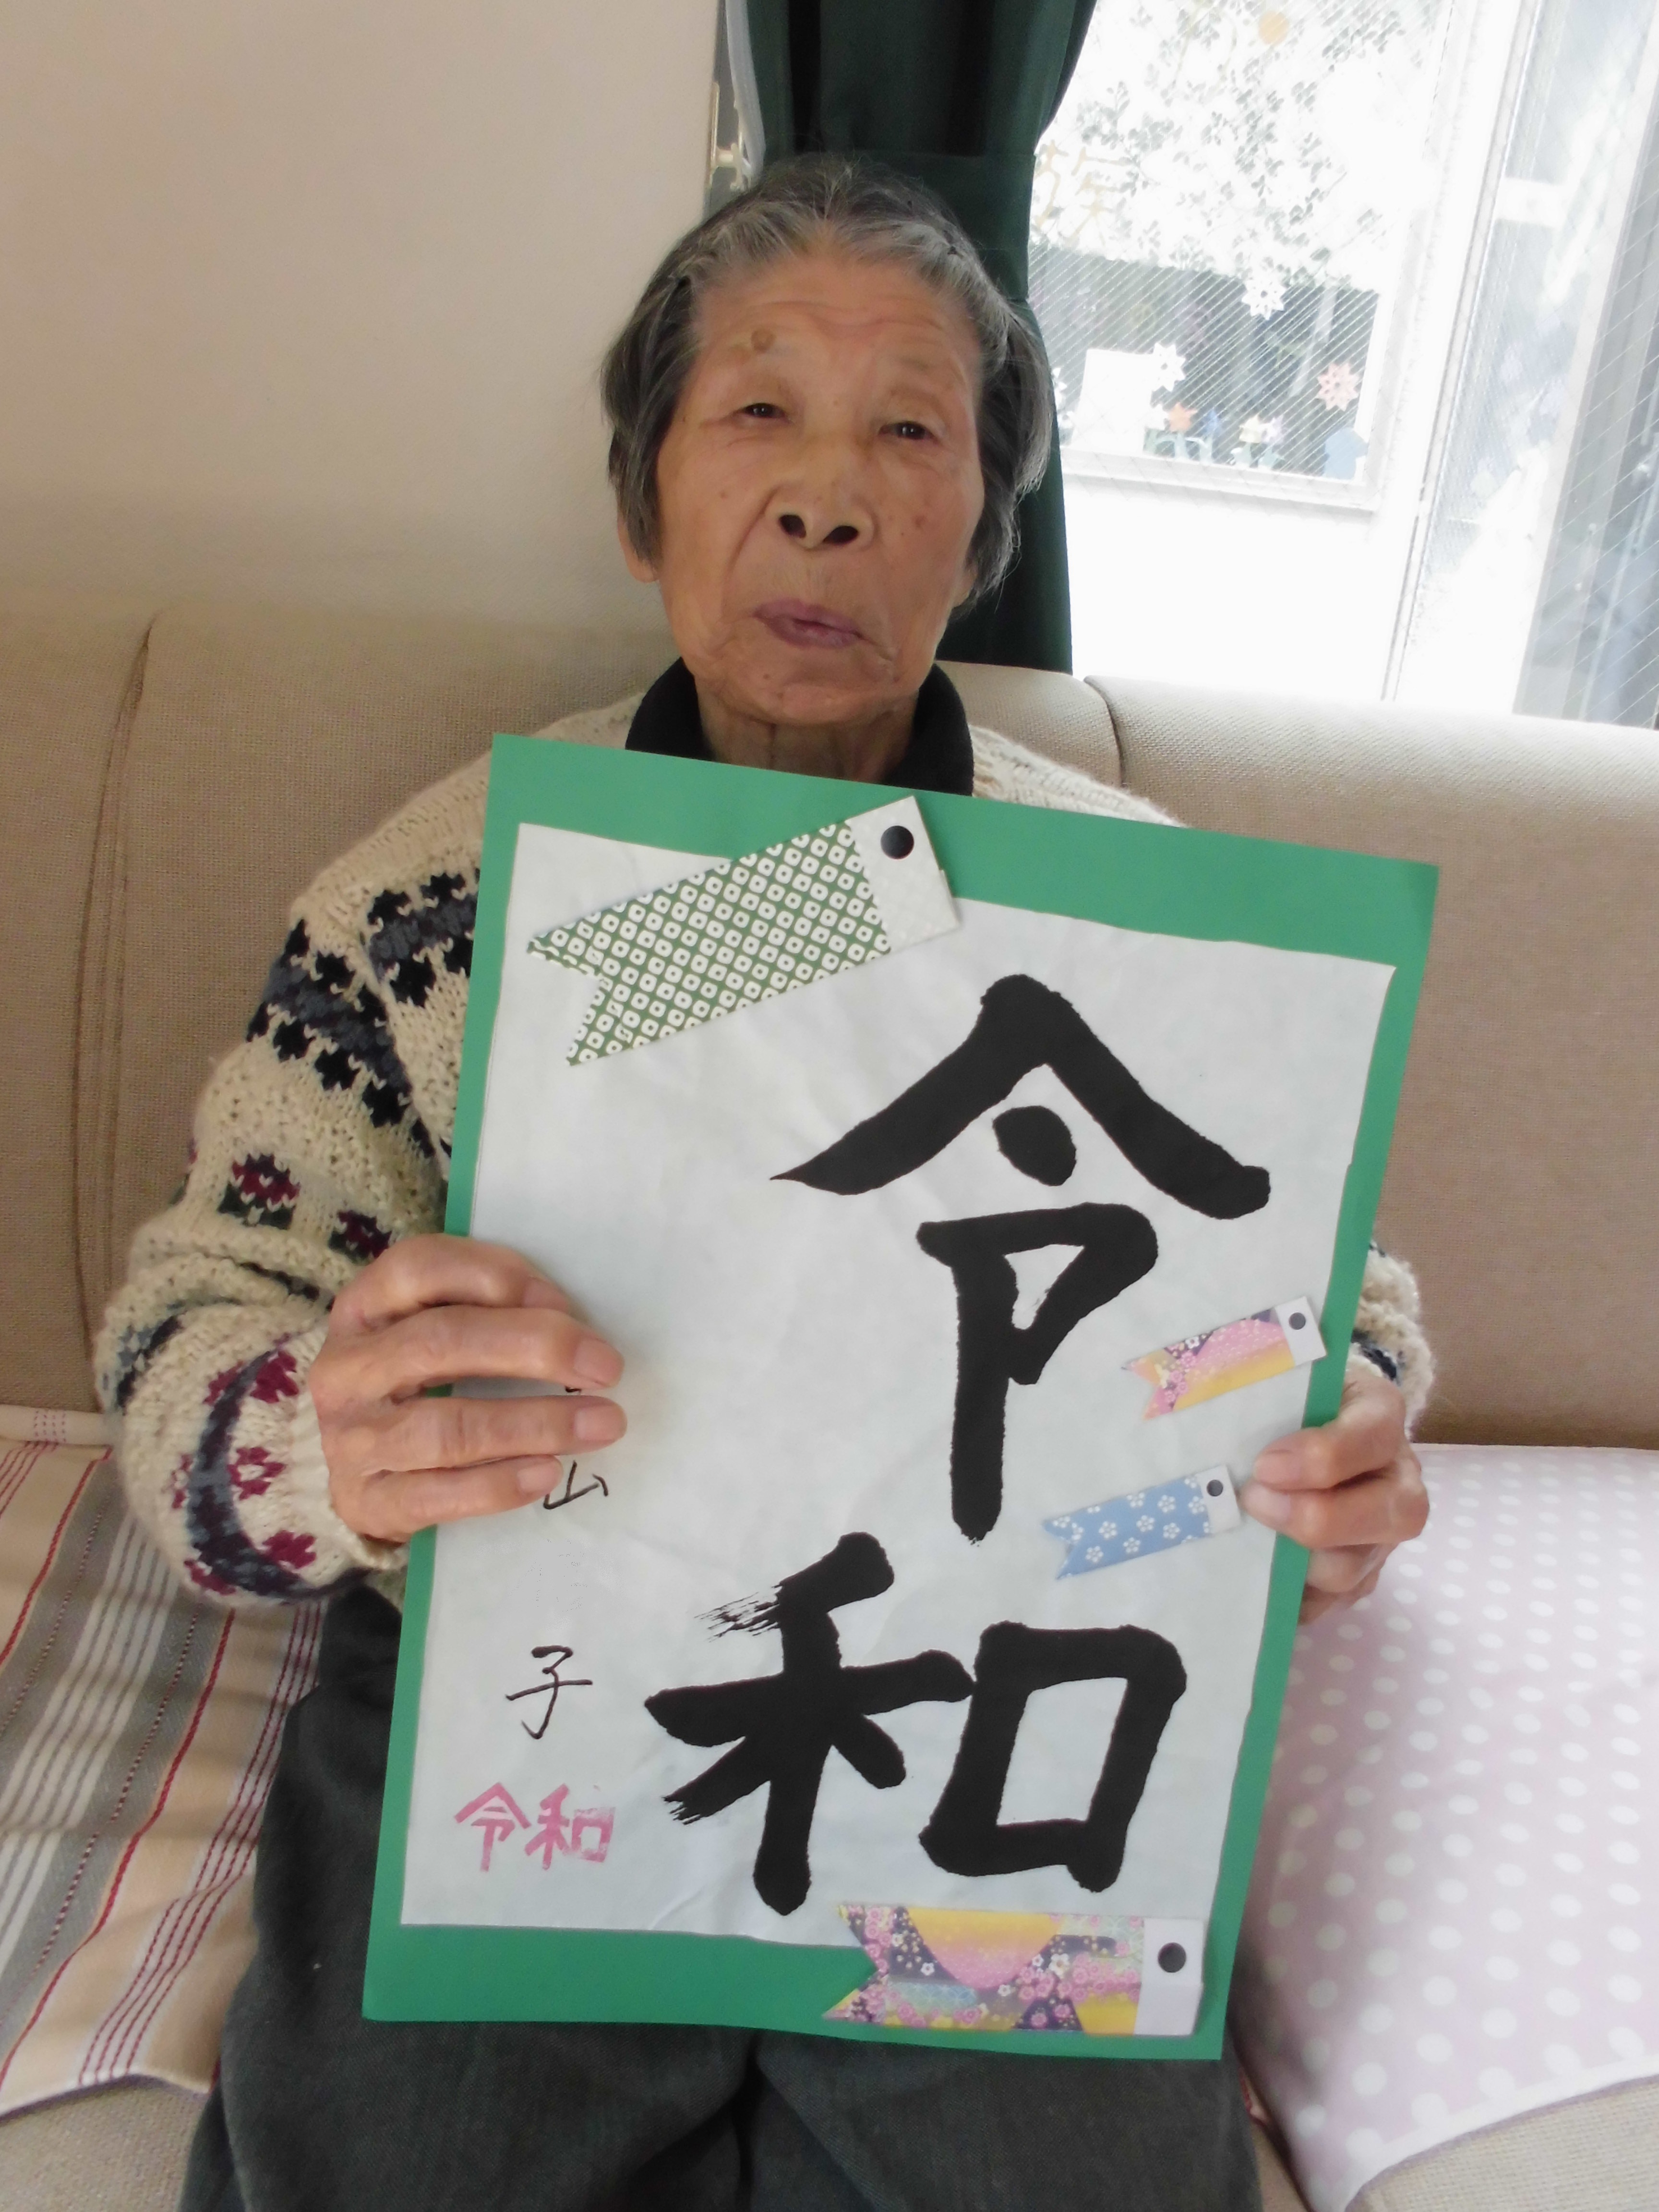 令和
山
子
令和